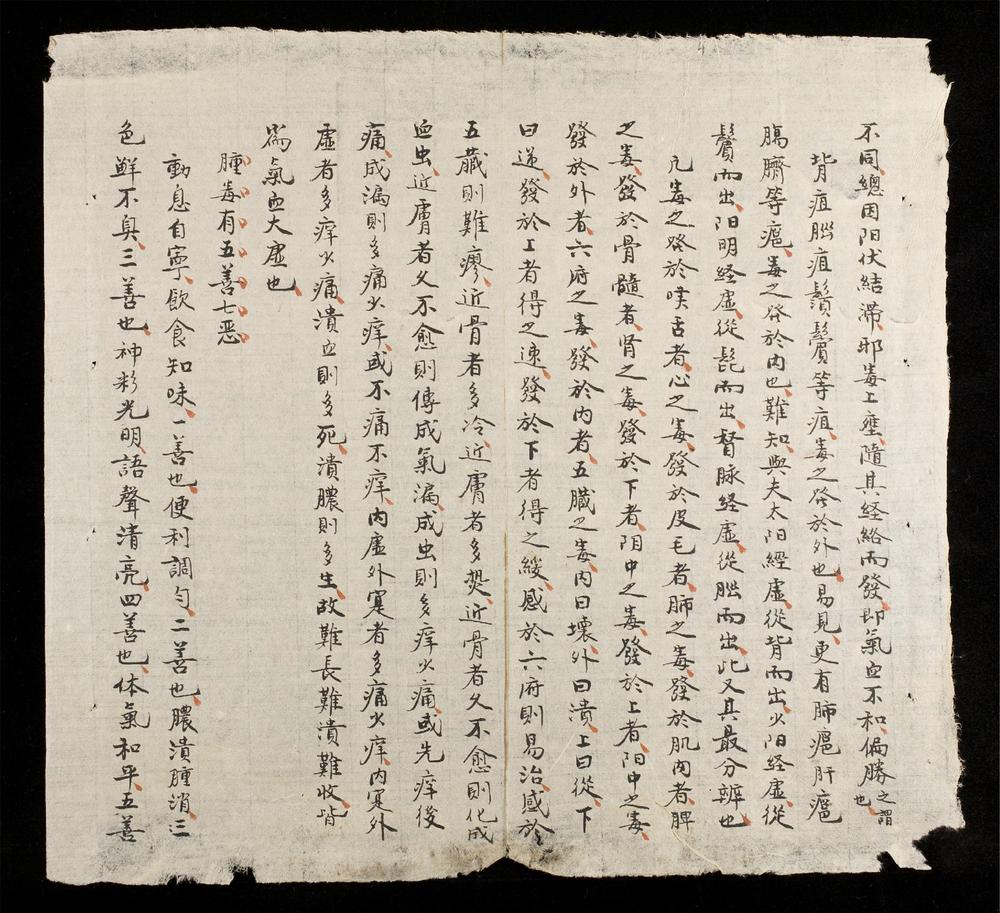 不同、總因阳伏結滞、邪毒上壅、隨其経絡而發、即氣血不和、偏勝之謂也、
背疽腦疽鬚鬢等疽、毒之発於外也、易見、更有肺癰肝癰
腸臍等癰、毒之発於内也、難知、與夫太阳經虛、從背而出、少阳経虛、從
鬢而出、阳明経虛、從髭而出、督脉経虛、從腦而出、此又其最分辨也、
凢毒之発於喉舌者、心之毒、發於皮毛者、肺之毒、發於肌肉者、脾
之毒、發於骨髓者、肾之毒、發於下者、阴中之毒、發於上者、阳中之毒、
發於外者、六府之毒、發於内者、五臓之毒、内曰壊、外曰潰、上曰從、下
曰逆、發於上者得之速、發於下者得之緩、感於六府則易治、感於
五臓則難瘳、近骨者多冷、近膚者多熱、近骨者久不愈則化成
血虫、近膚者久不愈則傳成氣漏、成虫則多痒少痛、或先痒後
痛、成漏則多痛少痒、或不痛不痒、内虛外寔者多痛少痒、内寔外
虛者多痒少痛、潰血則多死、潰膿則多生、故難長難潰難收、皆
為氣血大虛也、
腫毒有五善七恶
動息自寧、飲食知味、一善也、便利調勻、二善也、膿潰腫消三
色鮮不臭、三善也、神彩光明、語聲清亮、四善也、体氣和平、五善